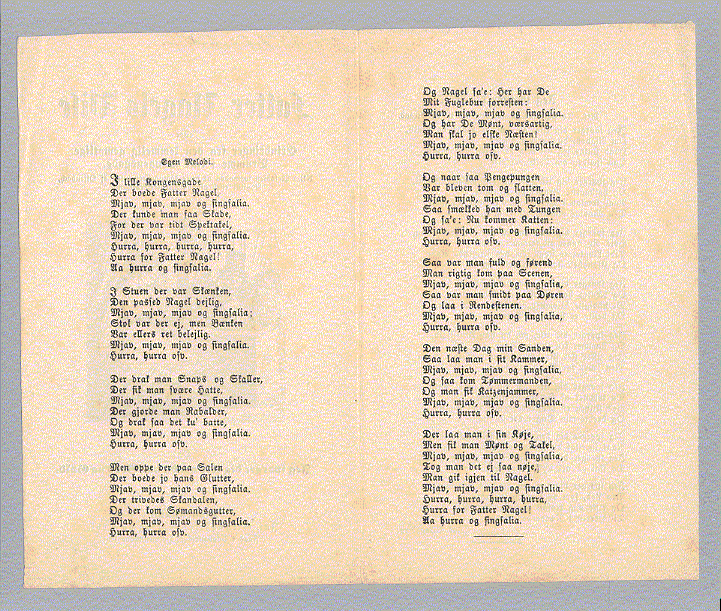 Egen Melodi.
I lille Kongensgade
Der boede Fatter Nagel,
Mjav, mjav, mjav og singsalia.
Der kunde man faa Skade,
For der var tidt Spektakel,
Mjav, mjav, mjav og singsalia.
Hurra, hurra, hurra, hurra,
Hurra for Fatter Nagel!
Aa hurra og singsalia.
I Stuen der var Skænken,
Den passed Nagel dejlig,
Mjav, mjav, mjav og singsalia;
Stol var der ej, men Bænken
Var ellers ret belejlig.
Mjav, mjav, mjav og singsalia.
Hurra, hurra osv.
Der drak man Snaps og Skaller,
Der fik man svære Hatte,
Mjav, mjav, mjav og singsalia.
Der gjorde man Rabalder,
Og drak saa det ku' batte,
Mjav, mjav, mjav og singsalia.
Hurra, hurra osv.
Men oppe der paa Salen
Der boede jo hans Glutter,
Mjav, mjav, mjav og singsalia.
Der trivedes Skandalen,
Og der kom Sømandsgutter,
Mjav, mjav, mjav og singsalia.
Hurra, hurra osv.
Og Nagel sa'e: Her har De
Mit Fuglebur forresten:
Mjav, mjav, mjav og singsalia.
Og har De Mønt, værsartig,
Man skal jo elske Næsten!
Mjav, mjav, mjav og singsalia.
Hurra, hurra osv.
Og naar saa Pengepungen
Var bleven tom og slatten,
Mjav, mjav, mjav og singsalia.
Saa smækked han med Tungen
Og sa'e: Nu kommer Katten:
Mjav, mjav, mjav og singsalia.
Hurra, hurra osv.
Saa var man fuld og førend
Man rigtig kom paa Scenen,
Mjav, mjav, mjav og singsalia,
Saa var man smidt paa Døren
Og laa i Rendestenen.
Mjav, mjav, mjav og singsalia,
Hurra, hurra osv.
Den næste Dag min Sanden,
Saa laa man i sit Kammer,
Mjav, mjav, mjav og singsalia,
Og saa kom Tømmermanden,
Og man fik Katzenjammer,
Mjav, mjav, mjav og singsalia.
Hurra, hurra osv.
Der laa man i sin Køje,
Men fik man Mønt og Takel,
Mjav, mjav, mjav og singsalia,
Tog man det ej saa nøje,
Man gik igjen til Nagel.
Mjav, mjav, mjav og singsalia.
Hurra, hurra, hurra, hurra,
Hurra for Fatter Nagel!
Aa hurra og singsalia.